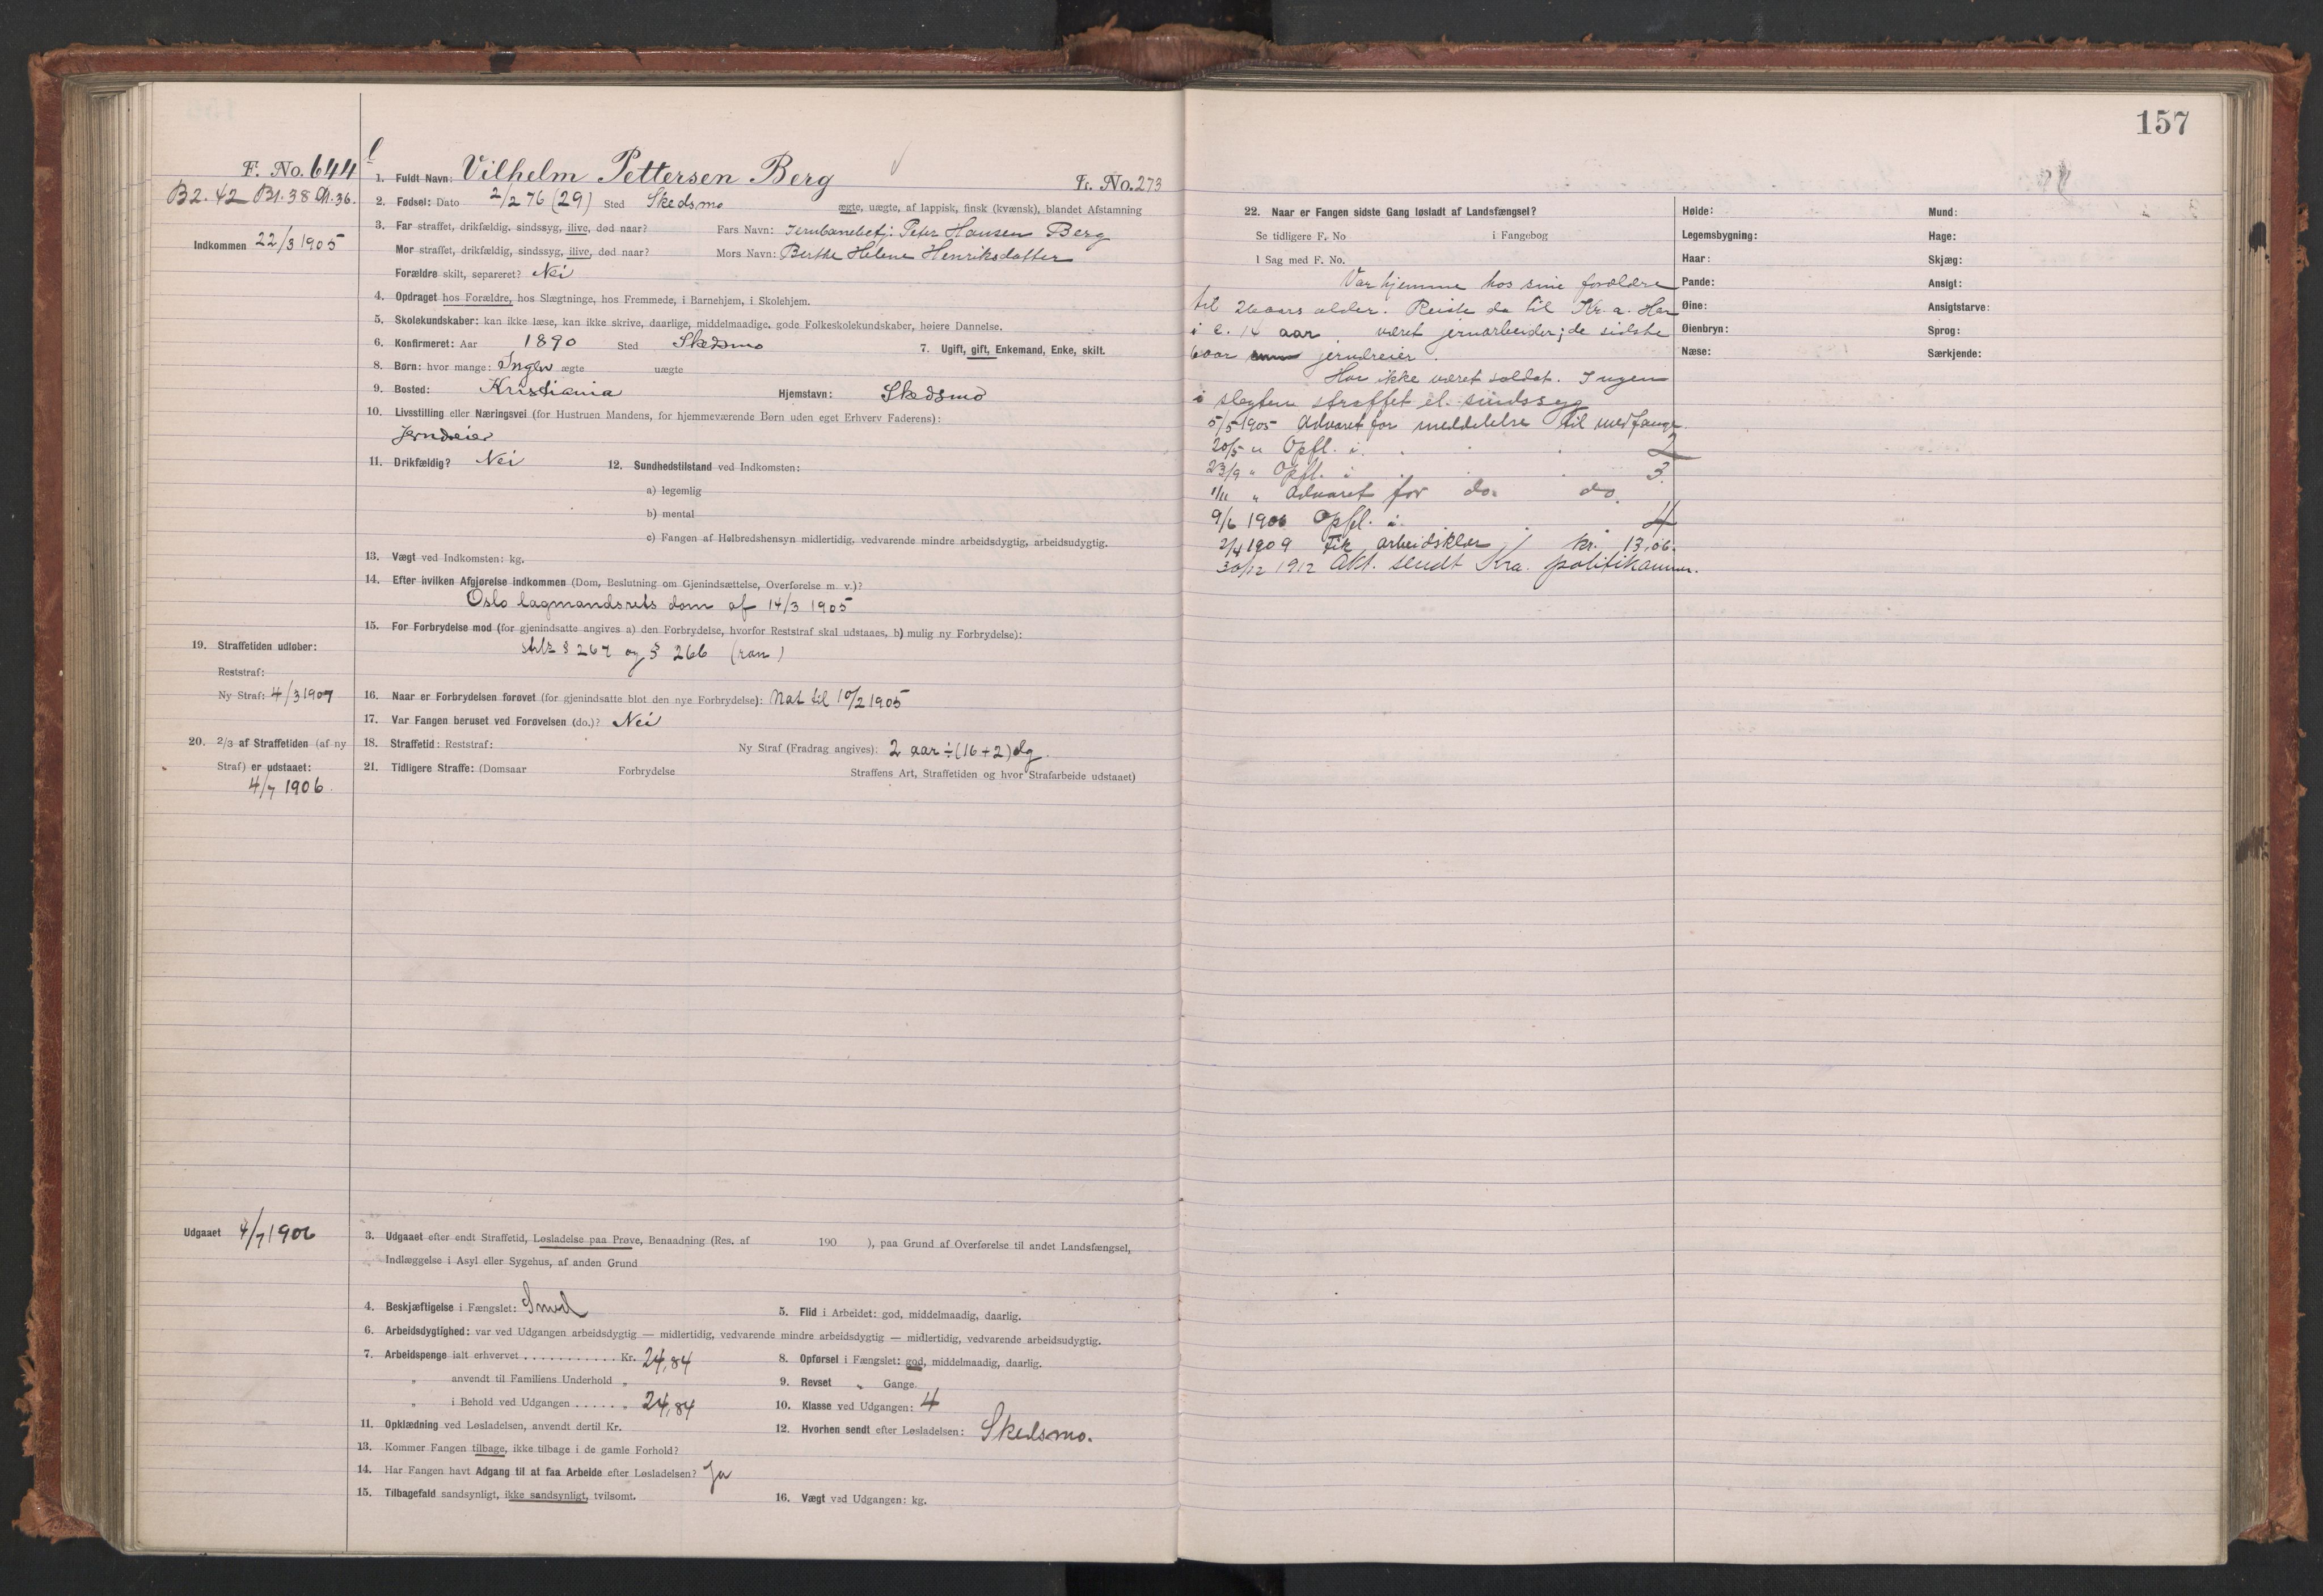 157
F. No. 644
1. Fuldt Navn: Vilhelm Pettersen Berg
Fr. No. 273
B2. 42 B1. 38 A. 36.
2. Fødsel: Dato 2/2 76 (29) Sted Skedsmo ægte, uægte, af lappisk, finsk (kvænsk), blandet Afstamning
Indkommen 22/3 1905
3. Far straffet, drikfældig, sindssyg, ilive, død naar? Fars Navn: Jernbanebetj: Peter Hansen Berg
Mor straffet, drikfældig, sindssyg, ilive, død naar? Mors Navn: Berthe Helene Henriksdatter
Forældre skilt, separeret? Nei
4. Opdraget hos Forældre, hos Slægtninge, hos Fremmede, i Barnehjem, i Skolehjem.
5. Skolekundskaber: kan ikke læse, kan ikke skrive, daarlige, middelmaadige, gode Folkeskolekundskaber, høiere Dannelse.
6. Konfirmeret: Aar 1890 Sted Skedsmo 7. Ugift, gift, Enkemand, Enke, skilt.
8. Børn: hvor mange: Ingen ægte uægte
9. Bosted: Kristiania Hjemstavn: Skedsmo
10. Livsstilling eller Næringsvei (for Hustruen Mandens, for hjemmeværende Børn uden eget Erhverv Faderens):
Jerndreier
11. Drikfældig? Nei 12. Sundhedstilstand ved Indkomsten:
a) legemlig
b) mental
c) Fangen af Helbredshensyn midlertidig, vedvarende mindre arbeidsdygtig, arbeidsudygtig.
13. Vægt ved Indkomsten: kg.
14. Efter hvilken Afgjørelse indkommen (Dom, Beslutning om Gjenindsættelse, Overførelse m. v.)?
Oslo lagmandsrets dom af 14/3 1905
15. For Forbrydelse mod (for gjenindsatte angives a) den Forbrydelse, hvorfor Reststraf skal udstaaes, b) mulig ny Forbrydelse):
strlb § 267 og § 266 (ran)
19. Straffetiden udløber:
Reststraf:
Ny Straf: 4/3 1907
16. Naar er Forbrydelsen forøvet (for gjenindsatte blot den nye Forbrydelse): Nat til 10/2 1905
17. Var Fangen beruset ved Forøvelsen (do.)? Nei
20. 2/3 af Straffetiden (af ny
Straf) er udstaaet:
4/7 1906.
18. Straffetid: Reststraf: Ny Straf (Fradrag angives): 2 aar ÷ (16 + 2) dg.
21. Tidligere Straffe: (Domsaar Forbrydelse Straffens Art, Straffetiden og hvor Strafarbeide udstaaet)
Udgaaet 4/7 1906
3. Udgaaet efter endt Straffetid, Løsladelse paa Prøve, Benaadning (Res. af 190 ), paa Grund af Overførelse til andet Landsfængsel,
Indlæggelse i Asyl eller Sygehus, af anden Grund
4. Beskjæftigelse i Fængslet: Smed 5. Flid i Arbeidet: god, middelmaadig, daarlig.
6. Arbeidsdygtighed: var ved Udgangen arbeidsdygtig — midlertidig, vedvarende mindre arbeidsdygtig — midlertidig, vedvarende arbeidsudygtig.
7. Arbeidspenge ialt erhvervet . . . . . . . . . . . . Kr. 24,84 8. Opførsel i Fængslet: god, middelmaadig, daarlig.
" anvendt til Familiens Underhold " 9. Revset " Gange.
" i Behold ved Udgangen . . . . . . " 24,84 10. Klasse ved Udgangen: 4
11. Opklædning ved Løsladelsen, anvendt dertil Kr. 12. Hvorhen sendt efter Løsladelsen: Skedsmo.
13. Kommer Fangen tilbage, ikke tilbage i de gamle Forhold?
14. Har Fangen havt Adgang til at faa Arbeide efter Løsladelsen? Ja
15. Tilbagefald sandsynligt, ikke sandsynligt, tvilsomt. 16. Vægt ved Udgangen: kg.
22. Naar er Fangen sidste Gang løsladt af Landsfængsel?
Se tidligere F. No i Fangebog
I Sag med F. No.
Var hjemme hos sine forældre
til 26 aars alder. Reiste da til Kr.a. Har
i c. 14 aar været jernarbeider; de sidste
6 aar jerndreier.
Har ikke været soldat. Ingen
i slegten straffet el. sindssyg
5/5 1905 Advaret for meddelelse til medfange.
20/5 " Opfl. i . . . 2
23/9 " Opfl. i . . . 3.
1/11 " Advaret for do. do.
9/6 1906 Opfl. i 4
2/4 1909 Fik arbeidsklær kr. 13,06.
30/12 1912 Akt. sendt Kra. politikammer.
Høide: Mund:
Legemsbygning: Hage:
Haar: Skjæg:
Pande: Ansigt:
Øine: Ansigtstarve:
Øienbryn: Sprog:
Næse: Særkjende: